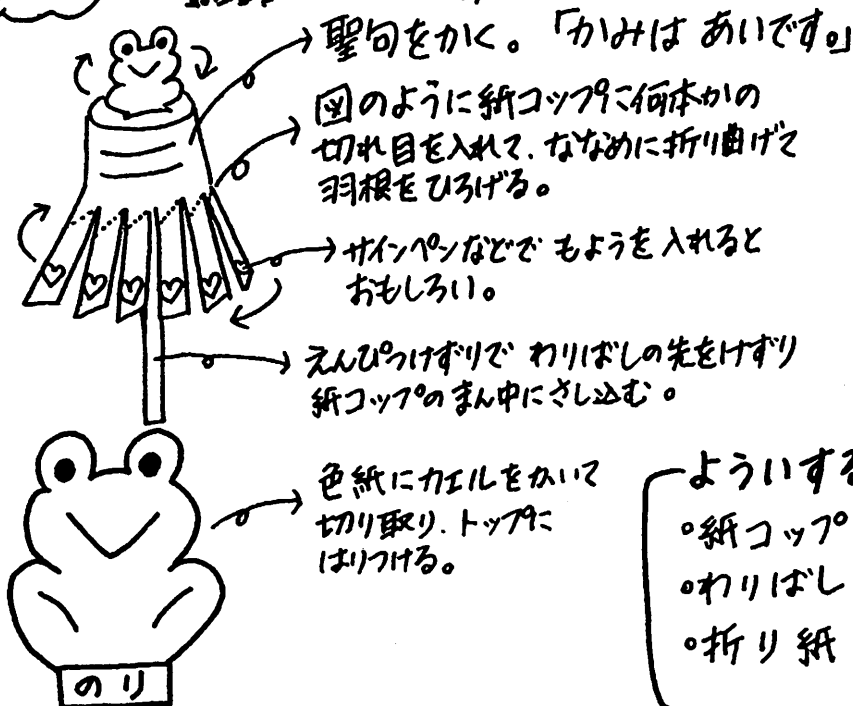 聖句をかく。「かみは あいです。」
図のように紙コップに何本かの
切れ目を入れて、ななめに折り曲げて
羽根をひろげる。
サインペンなどで もようを入れると
おもしろい。
えんぴつけずりで わりばしの先をけずり
紙コップのまん中にさし込む。
色紙にカエルをかいて
切り取り、トップに
はりつける。
のり
よういする
°紙コップ
°わりばし
°折り紙